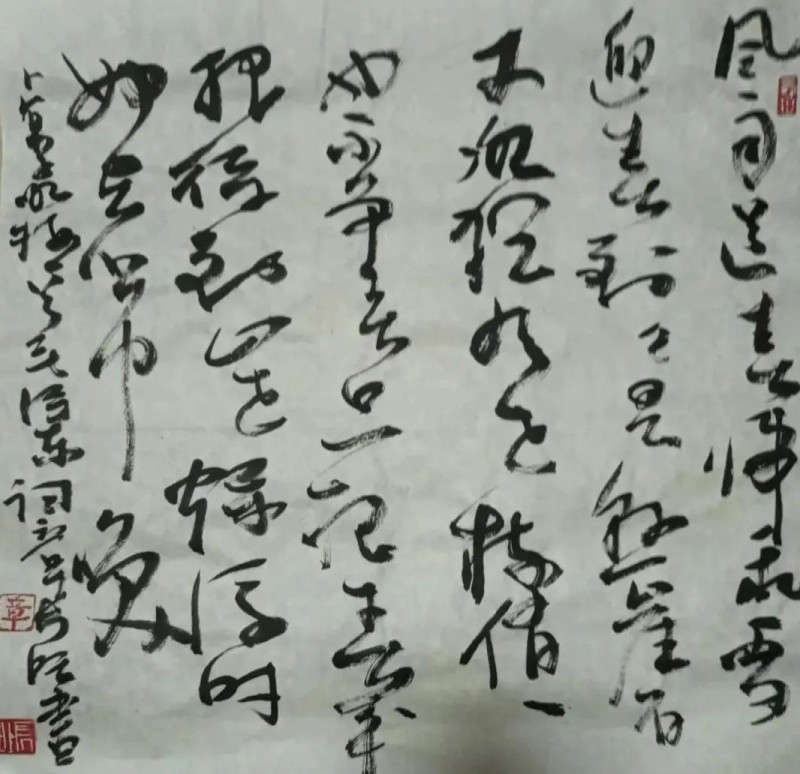 风雨送春归飞雪
迎春到已是悬崖百
丈冰犹有花枝俏、
也不争春只把春来
报待到山花烂漫时
她在丛中笑
卜算子咏梅 毛泽东词 书
章
張